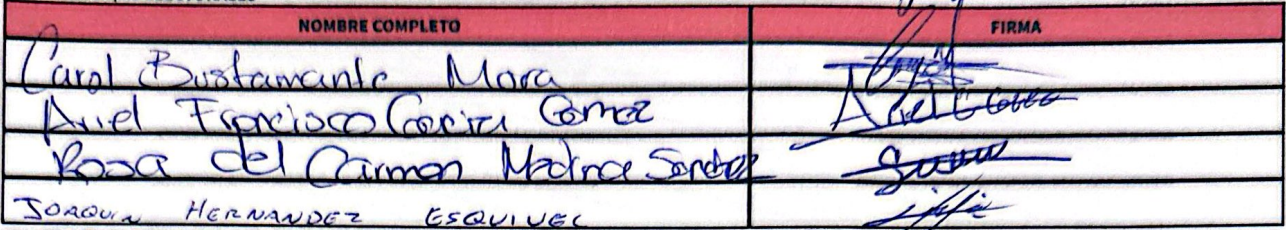 NOMBRE COMPLETO FIRMA
Carol Bustamante Mora
Ariel Francisco Garcia Gomez
Rosa del Carmen Medina Sanchez
JOAQUIN HERNANDEZ ESQUIVEL